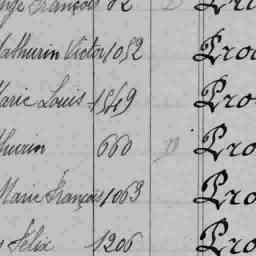 François 82
Mathurin Victor 1052 Pro
Marie Louis 1549 Pro
thurin 660 Pro
Marie François 1063 Pro
Félix 1206 Pro